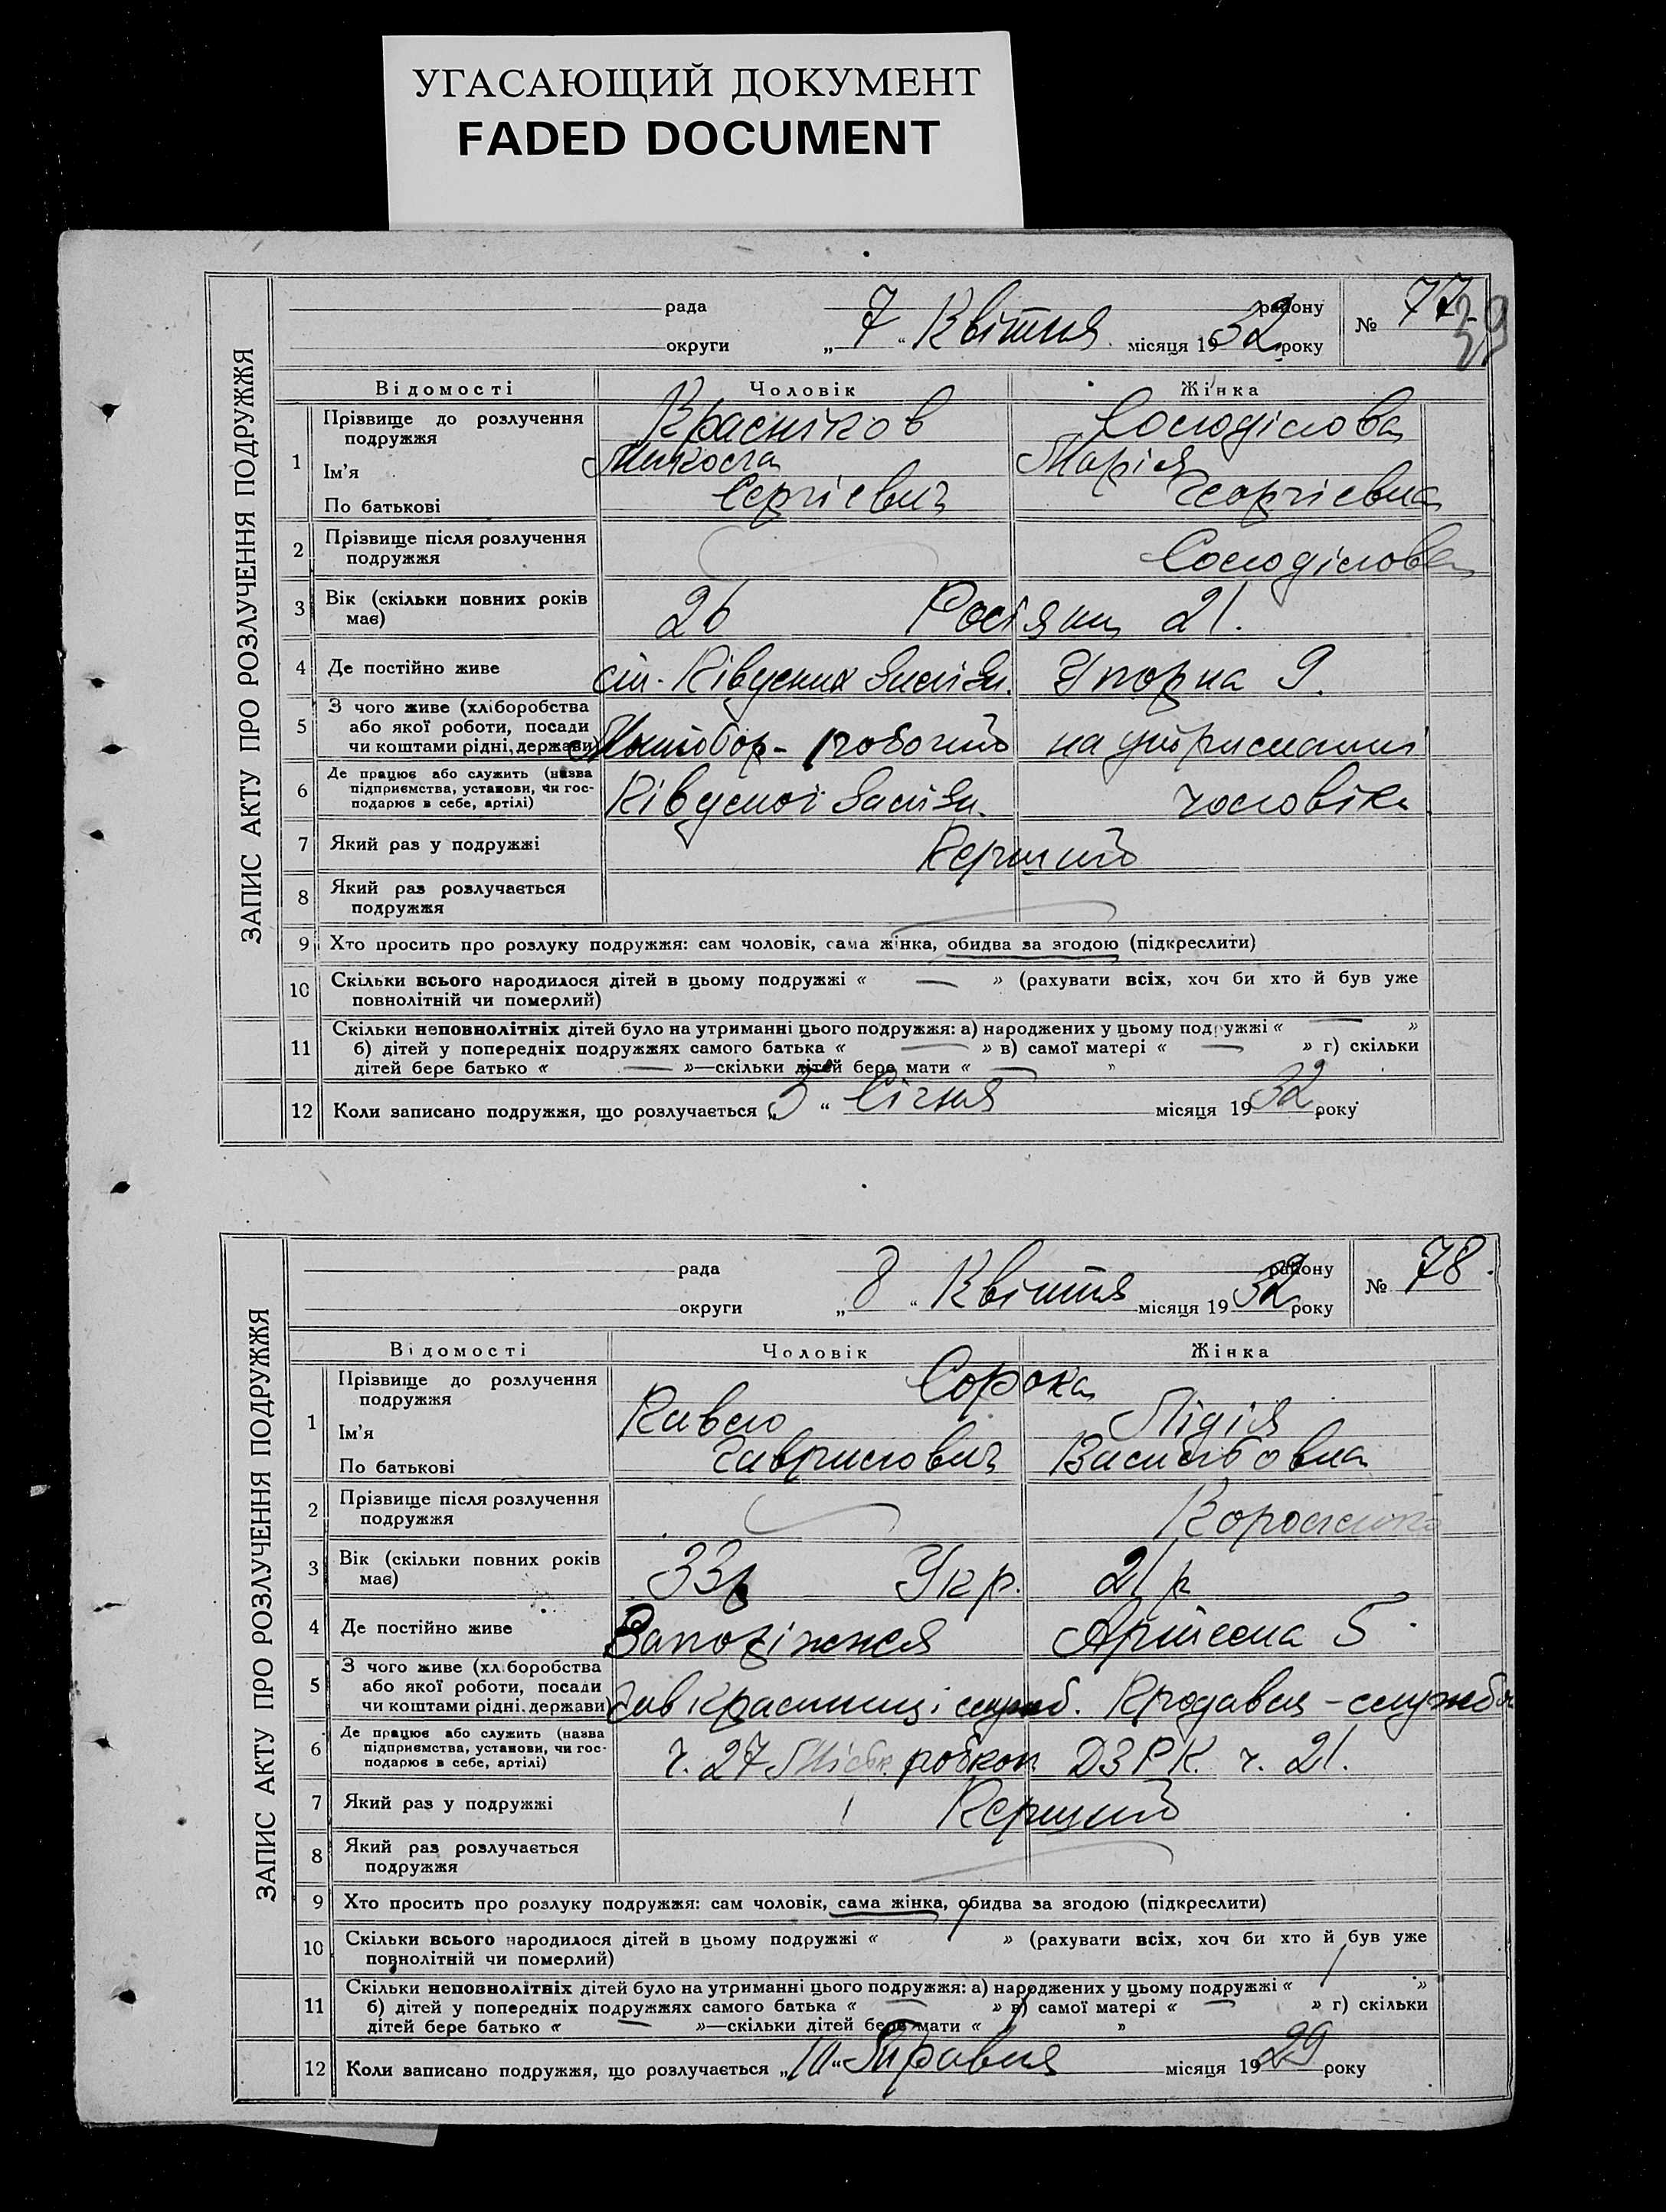 УГАСАЮЩИЙ ДОКУМЕНТ
FADED DOCUMENT
ЗАПИС АКТУ ПРО РОЗЛУЧЕННЯ ПОДРУЖЖЯ
рада району № 77
39
округи „7“ Квітня місяця 1932 року
Відомості Чоловік Жінка
1 Прізвище до розлучення подружжя Красніков Солоділова
Ім'я Микола Марія
По батькові Сергієвич Георгієвна
2 Прізвище після розлучення подружжя Солоділова
3 Вік (скільки повних років має) 26 Росіяни 21.
4 Де постійно живе ст. Південна Упорна 9.
5 З чого живе (хліборобства або якої роботи, посади чи коштами рідні, держави) робочий на утриманні
6 Де працює або служить (назва підприємства, установи, чи господарює в себе, артілі) Південої чоловіка
7 Який раз у подружжі Перший
8 Який раз розлучається подружжя
9 Хто просить про розлуку подружжя: сам чоловік, сама жінка, обидва за згодою (підкреслити)
10 Скільки всього народилося дітей в цьому подружжі « — » (рахувати всіх, хоч би хто й був уже
повнолітній чи померлий)
11 Скільки неповнолітніх дітей було на утриманні цього подружжя: а) народжених у цьому подружжі « — »
б) дітей у попередніх подружжях самого батька « — » в) самої матері « — » г) скільки
дітей бере батько « — »—скільки дітей бере мати « — »
12 Коли записано подружжя, що розлучається „3“ Січня місяця 1932 року
ЗАПИС АКТУ ПРО РОЗЛУЧЕННЯ ПОДРУЖЖЯ
рада району № 78.
округи „8“ Квітня місяця 1932 року
Відомості Чоловік Жінка
1 Прізвище до розлучення подружжя Сорока
Ім'я Павло Лідія
По батькові Гаврилович Васильовна
2 Прізвище після розлучення подружжя
3 Вік (скільки повних років має) 33р Укр. 21р
4 Де постійно живе Запоріжжя Артема 5
5 З чого живе (хліборобства або якої роботи, посади чи коштами рідні, держави) Зав крамниці служб. Продавця – служб
6 Де працює або служить (назва підприємства, установи, чи господарює в себе, артілі) ч. 27 Міськ. робкоп ДЗРК. ч. 21.
7 Який раз у подружжі Перший
8 Який раз розлучається подружжя
9 Хто просить про розлуку подружжя: сам чоловік, сама жінка, обидва за згодою (підкреслити)
10 Скільки всього народилося дітей в цьому подружжі « » (рахувати всіх, хоч би хто й був уже
повнолітній чи померлий)
11 Скільки неповнолітніх дітей було на утриманні цього подружжя: а) народжених у цьому подружжі « »
б) дітей у попередніх подружжях самого батька « — » в) самої матері « — » г) скільки
дітей бере батько « — »—скільки дітей бере мати « »
12 Коли записано подружжя, що розлучається Травня місяця 1929 року